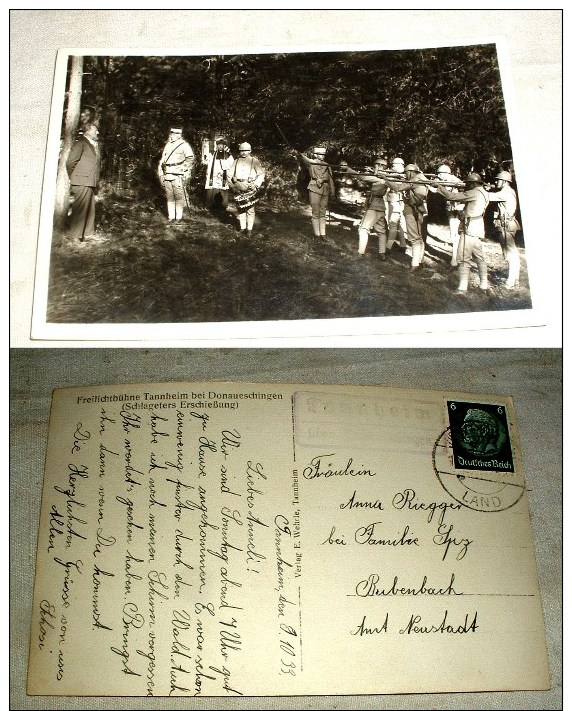 Freilichtbühne Tannheim bei Donaueschingen
(Schlageters Erschießung)
Verlag E. Wehrle, Tannheim
Tannheim, den 9.10.33.
Liebes Anneli!
Wir sind Sonntag abend 7 Uhr gut
zu Hause angekommen. Es war schon
einwenig finster durch den Wald. Auch
habe ich noch meinen Schirm vergessen
Ihr werdet's gesehen haben Bringst
ihn dann wenn Du kommst.
Die Herzlichsten Grüsse von uns
Allen
6 6
Deutsches Reich
LAND
Fräulein
Anna Riegger
bei Familie
Rubenbach
Amt Neustadt